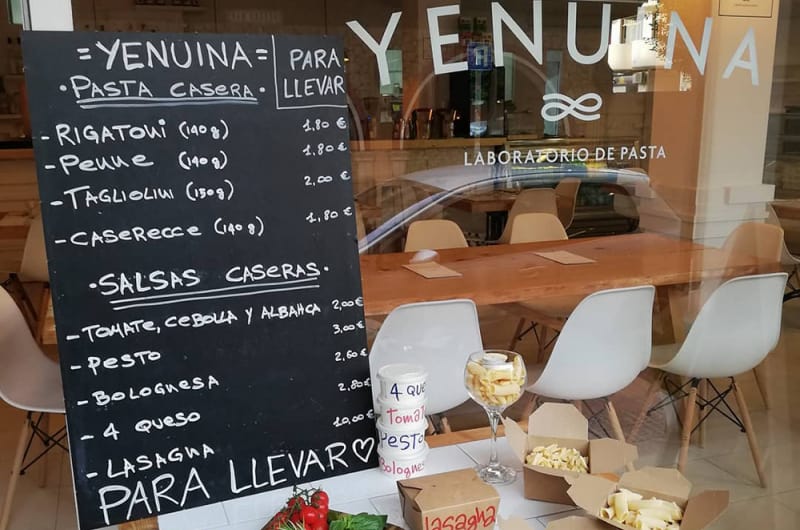 =YENUINA=
PARA
LLEVAR
·PASTA CASERA·
-RIGATONI (140g) 1,80 €
-PENNE (140g) 1,80 €
-TAGLIOLINI (150g) 2,00 €
-CASERECCE (140g) 1,80 €
·SALSAS CASERAS·
-TOMATE, CEBOLLA Y ALBAHCA 2,00 €
-PESTO 3,00 €
-BOLOGNESA 2,60 €
-4 QUESO 2,80 €
-LASAGNA 10,00 €
PARA LLEVAR♡
YENUINA
LABORATORIO DE PASTA
4 QUE
TOMAT
PESTO
BOLOGNES
lasagna